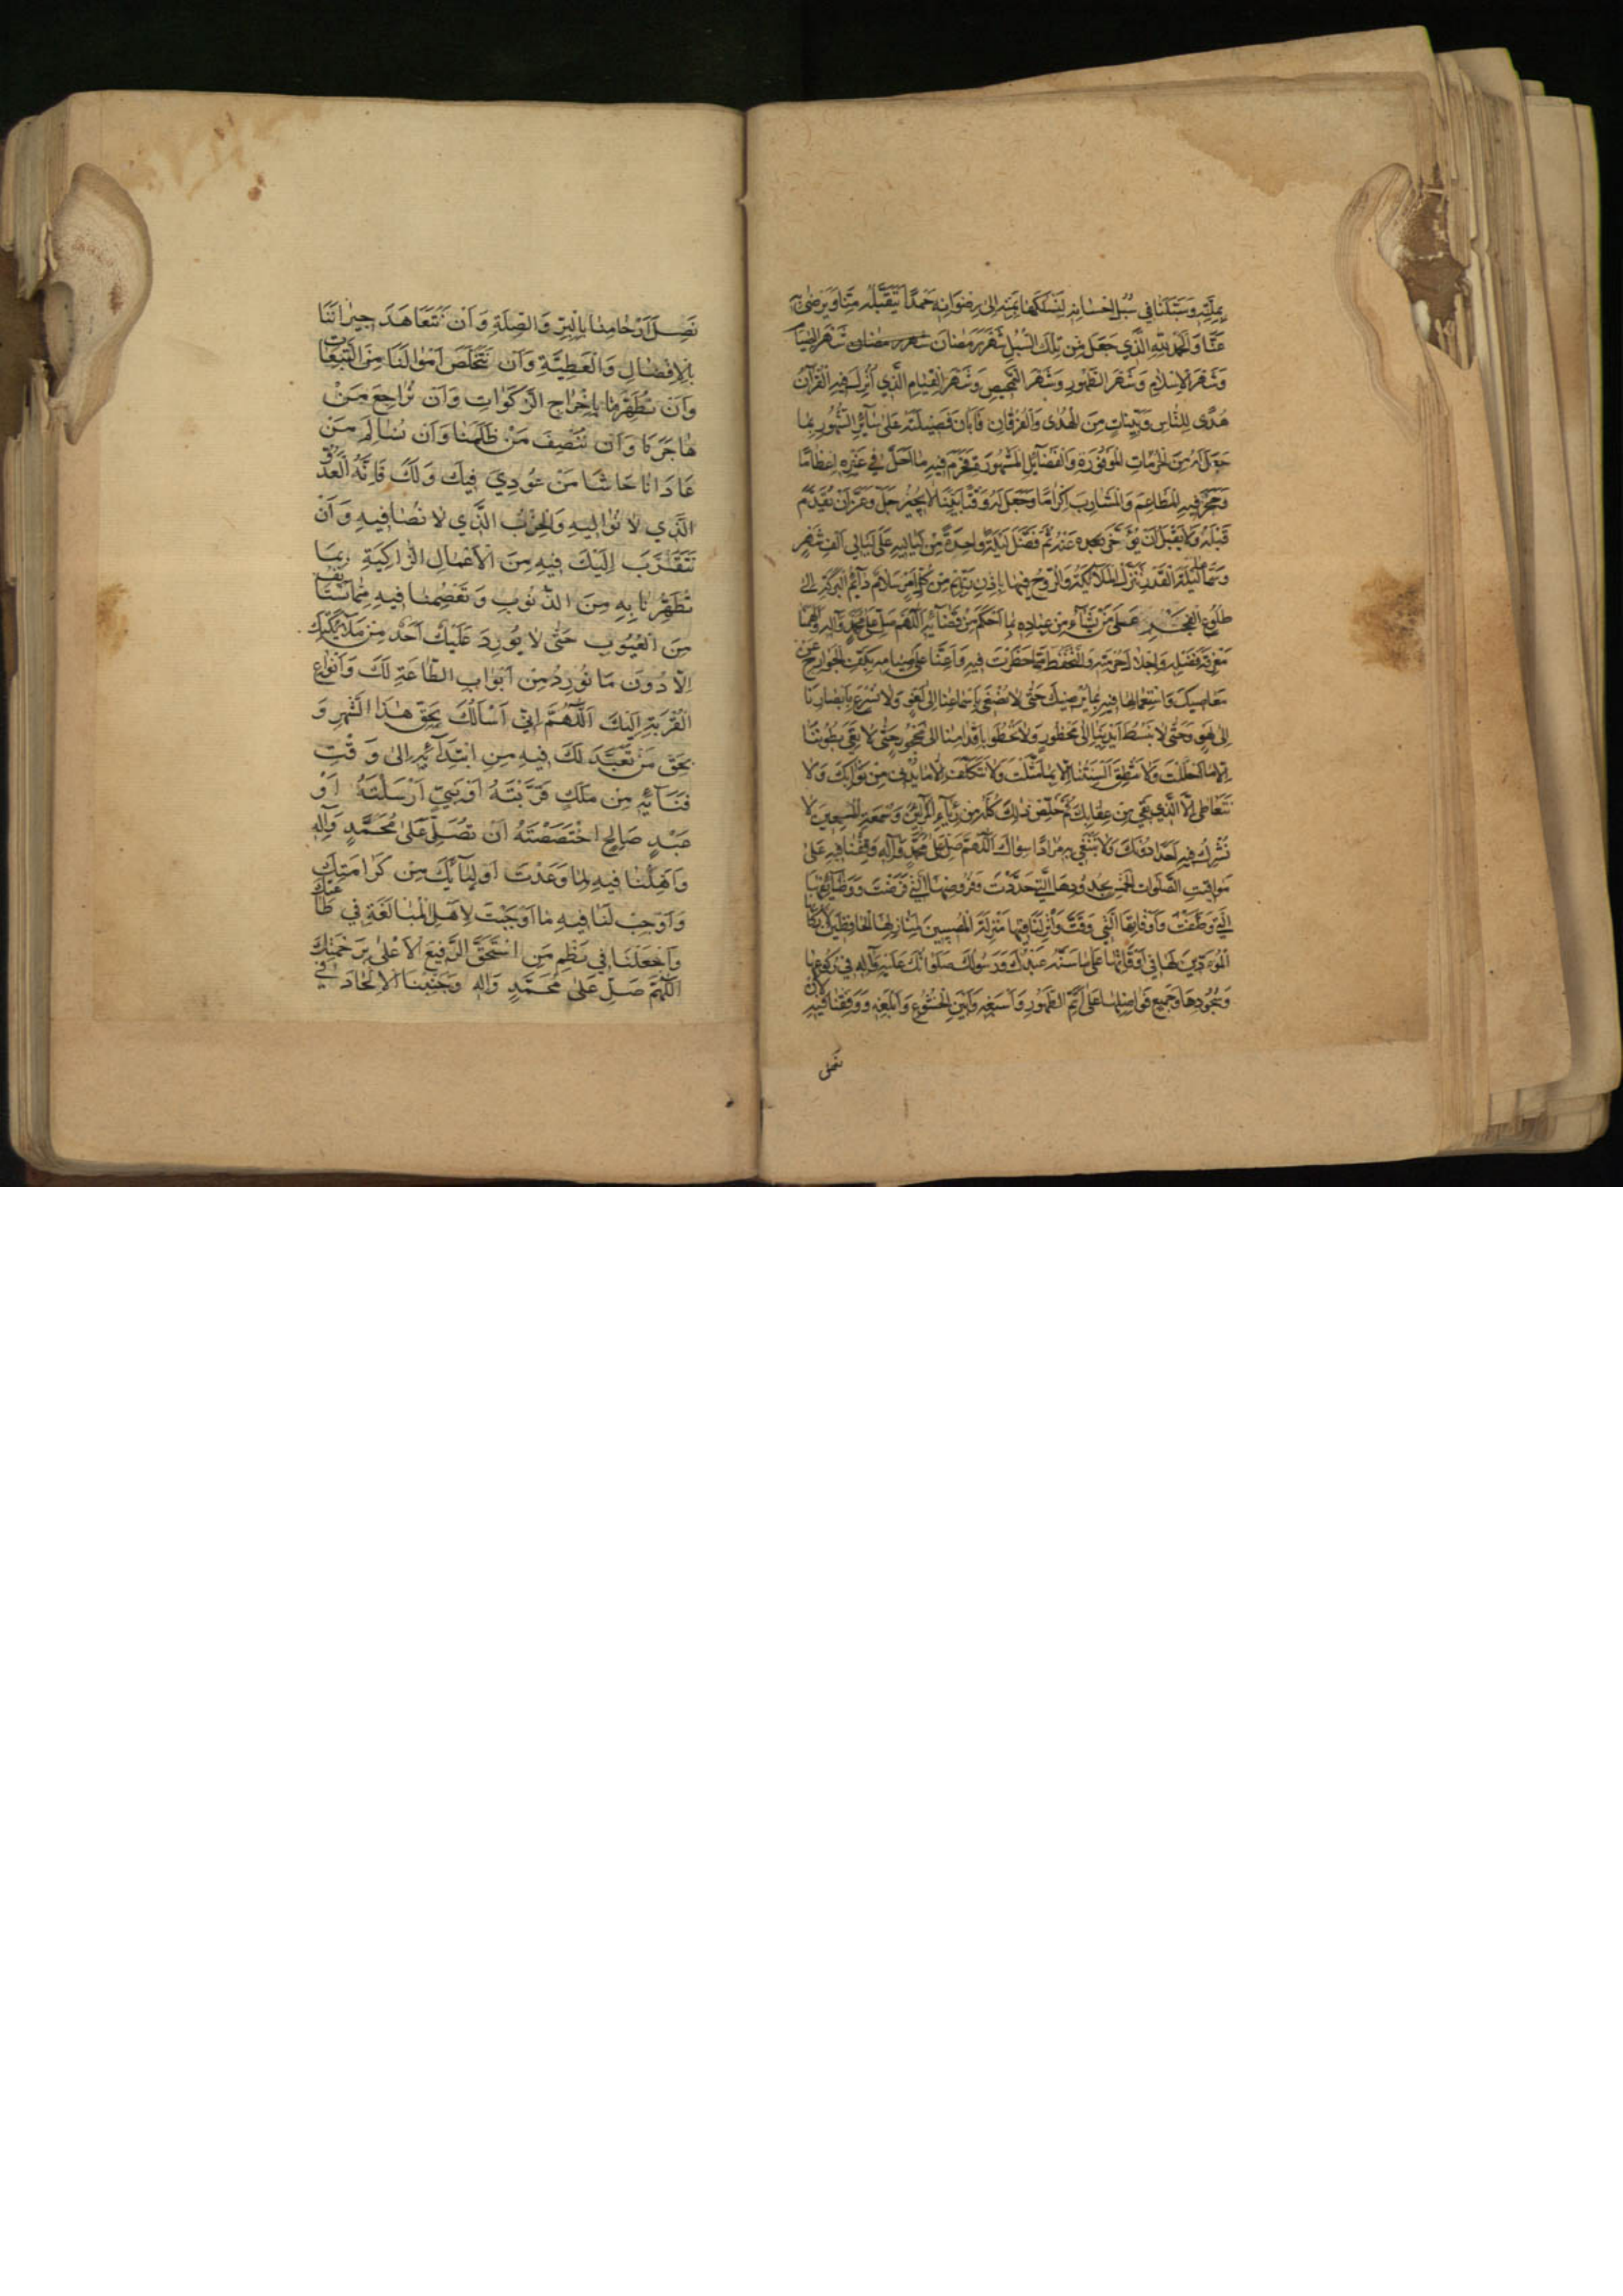 بِمِلَّتِهِ وَسَبَّلَنَا فِي سُبُلِ اِحْسَانِهِ لِنَسْلُكَهَا بِمَنِّهِ اِلٰى رِضْوَانِهِ حَمْدًا يَتَقَبَّلُهُ مِنَّا وَيَرْضٰى بِهِ
عَنَّا وَالْحَمْدُ لِلّٰهِ الَّذِي جَعَلَ مِنْ تِلْكَ السُّبُلِ شَهْرَ رَمَضَانَ شَهْرَ الصِّيَامِ
وَشَهْرَ الْاِسْلَامِ وَشَهْرَ الطَّهُورِ وَشَهْرَ التَّمْحِيصِ وَشَهْرَ الْقِيَامِ الَّذِي اُنْزِلَ فِيهِ الْقُرْآنُ
هُدًى لِلنَّاسِ وَبَيِّنَاتٍ مِنَ الْهُدٰى وَالْفُرْقَانِ فَاَبَانَ فَضِيلَتَهُ عَلٰى سَائِرِ الشُّهُورِ بِمَا
جَعَلَ لَهُ مِنَ الْحُرُمَاتِ الْمَوْفُورَةِ وَالْفَضَائِلِ الْمَشْهُورَةِ فَحَرَّمَ فِيهِ مَا اَحَلَّ فِي غَيْرِهِ اِعْظَامًا
وَحَجَرَ فِيهِ الْمَطَاعِمَ وَالْمَشَارِبَ اِكْرَامًا وَجَعَلَ لَهُ وَقْتًا بَيِّنًا لَا يُجِيزُ جَلَّ وَعَزَّ اَنْ يُقَدَّمَ
قَبْلَهُ وَلَا يَقْبَلُ اَنْ يُؤَخَّرَ عَنْهُ ثُمَّ فَضَّلَ لَيْلَةً وَاحِدَةً مِنْ لَيَالِيهِ عَلٰى لَيَالِي اَلْفِ شَهْرٍ
وَسَمَّاهَا لَيْلَةَ الْقَدْرِ تَنَزَّلُ الْمَلَائِكَةُ وَالرُّوحُ فِيهَا بِاِذْنِ رَبِّهِمْ مِنْ كُلِّ اَمْرٍ سَلَامٌ دَائِمُ الْبَرَكَةِ اِلٰى
طُلُوعِ الْفَجْرِ عَلٰى مَنْ يَشَاءُ مِنْ عِبَادِهِ بِمَا اَحْكَمَ مِنْ قَضَائِهِ اَللّٰهُمَّ صَلِّ عَلٰى مُحَمَّدٍ وَآلِهِ وَاَلْهِمْنَا
مَعْرِفَةَ فَضْلِهِ وَاِجْلَالَ حُرْمَتِهِ وَالتَّحَفُّظَ مِمَّا حَظَرْتَ فِيهِ وَاَعِنَّا عَلٰى صِيَامِهِ بِكَفِّ الْجَوَارِحِ عَنْ
مَعَاصِيكَ وَاسْتِعْمَالِهَا فِيهِ بِمَا يُرْضِيكَ حَتّٰى لَا نُصْغِيَ بِاَسْمَاعِنَا اِلٰى لَغْوٍ وَلَا نُسْرِعَ بِاَبْصَارِنَا
اِلٰى لَهْوٍ وَحَتّٰى لَا نَبْسُطَ اَيْدِيَنَا اِلٰى مَحْظُورٍ وَلَا نَخْطُوَ بِاَقْدَامِنَا اِلٰى مَحْجُورٍ حَتّٰى لَا تَعِيَ بُطُونُنَا
اِلَّا مَا اَحْلَلْتَ وَلَا تَنْطِقَ اَلْسِنَتُنَا اِلَّا بِمَا مَثَّلْتَ وَلَا نَتَكَلَّفَ اِلَّا مَا يُدْنِي مِنْ ثَوَابِكَ وَلَا
نَتَعَاطٰى اِلَّا الَّذِي يَقِي مِنْ عِقَابِكَ ثُمَّ خَلِّصْ ذٰلِكَ كُلَّهُ مِنْ رِئَاءِ الْمُرَائِينَ وَسُمْعَةِ الْمُسْمِعِينَ لَا
نُشْرِكُ فِيهِ اَحَدًا دُونَكَ وَلَا نَبْتَغِي بِهِ مُرَادًا سِوَاكَ اَللّٰهُمَّ صَلِّ عَلٰى مُحَمَّدٍ وَآلِهِ وَقِفْنَا فِيهِ عَلٰى
مَوَاقِيتِ الصَّلَوَاتِ الْخَمْسِ بِحُدُودِهَا الَّتِي حَدَّدْتَ وَفُرُوضِهَا الَّتِي فَرَضْتَ وَوَظَائِفِهَا
الَّتِي وَظَّفْتَ وَاَوْقَاتِهَا الَّتِي وَقَّتَّ وَاَنْزِلْنَا فِيهَا مَنْزِلَةَ الْمُصِيبِينَ لِمَنَازِلِهَا الْحَافِظِينَ لِاَرْكَانِهَا
الْمُؤَدِّينَ لَهَا فِي اَوْقَاتِهَا عَلٰى مَا سَنَّهُ عَبْدُكَ وَرَسُولُكَ صَلَوَاتُكَ عَلَيْهِ وَآلِهِ فِي رُكُوعِهَا
وَسُجُودِهَا وَجَمِيعِ فَوَاضِلِهَا عَلٰى اَتَمِّ الطَّهُورِ وَاَسْبَغِهِ وَاَبْيَنِ الْخُشُوعِ وَاَبْلَغِهِ وَوَفِّقْنَا فِيهِ لِاَنْ
نَصِلَ
نَصِلَ اَرْحَامَنَا بِالْبِرِّ وَالصِّلَةِ وَاَنْ نَتَعَاهَدَ جِيرَانَنَا
بِالْاِفْضَالِ وَالْعَطِيَّةِ وَاَنْ نُخَلِّصَ اَمْوَالَنَا مِنَ التَّبِعَاتِ
وَاَنْ نُطَهِّرَهَا بِاِخْرَاجِ الزَّكَوَاتِ وَاَنْ نُرَاجِعَ مَنْ
هَاجَرَنَا وَاَنْ نُنْصِفَ مَنْ ظَلَمَنَا وَاَنْ نُسَالِمَ مَنْ
عَادَانَا حَاشَا مَنْ عُودِيَ فِيكَ وَلَكَ فَاِنَّهُ الْعَدُوُّ
الَّذِي لَا نُوَالِيهِ وَالْحِزْبُ الَّذِي لَا نُصَافِيهِ وَاَنْ
نَتَقَرَّبَ اِلَيْكَ فِيهِ مِنَ الْاَعْمَالِ الزَّاكِيَةِ بِمَا
تُطَهِّرُنَا بِهِ مِنَ الذُّنُوبِ وَتَعْصِمُنَا فِيهِ مِمَّا نَسْتَأْنِفُ
مِنَ الْعُيُوبِ حَتّٰى لَا يُورِدَ عَلَيْكَ اَحَدٌ مِنْ مَلَائِكَتِكَ
اِلَّا دُونَ مَا نُورِدُ مِنْ اَبْوَابِ الطَّاعَةِ لَكَ وَاَنْوَاعِ
الْقُرْبَةِ اِلَيْكَ اَللّٰهُمَّ اِنِّي اَسْاَلُكَ بِحَقِّ هٰذَا الشَّهْرِ وَ
بِحَقِّ مَنْ تَعَبَّدَ لَكَ فِيهِ مِنِ ابْتِدَائِهِ اِلٰى وَقْتِ
فَنَائِهِ مِنْ مَلَكٍ قَرَّبْتَهُ اَوْ نَبِيٍّ اَرْسَلْتَهُ اَوْ
عَبْدٍ صَالِحٍ اخْتَصَصْتَهُ اَنْ تُصَلِّيَ عَلٰى مُحَمَّدٍ وَآلِهِ
وَاَهِّلْنَا فِيهِ لِمَا وَعَدْتَ اَوْلِيَائَكَ مِنْ كَرَامَتِكَ
وَاَوْجِبْ لَنَا فِيهِ مَا اَوْجَبْتَ لِاَهْلِ الْمُبَالَغَةِ فِي طَاعَتِكَ
وَاجْعَلْنَا فِي نَظْمِ مَنِ اسْتَحَقَّ الرَّفِيعَ الْاَعْلٰى بِرَحْمَتِكَ
اَللّٰهُمَّ صَلِّ عَلٰى مُحَمَّدٍ وَآلِهِ وَجَنِّبْنَا الْاِلْحَادَ فِي